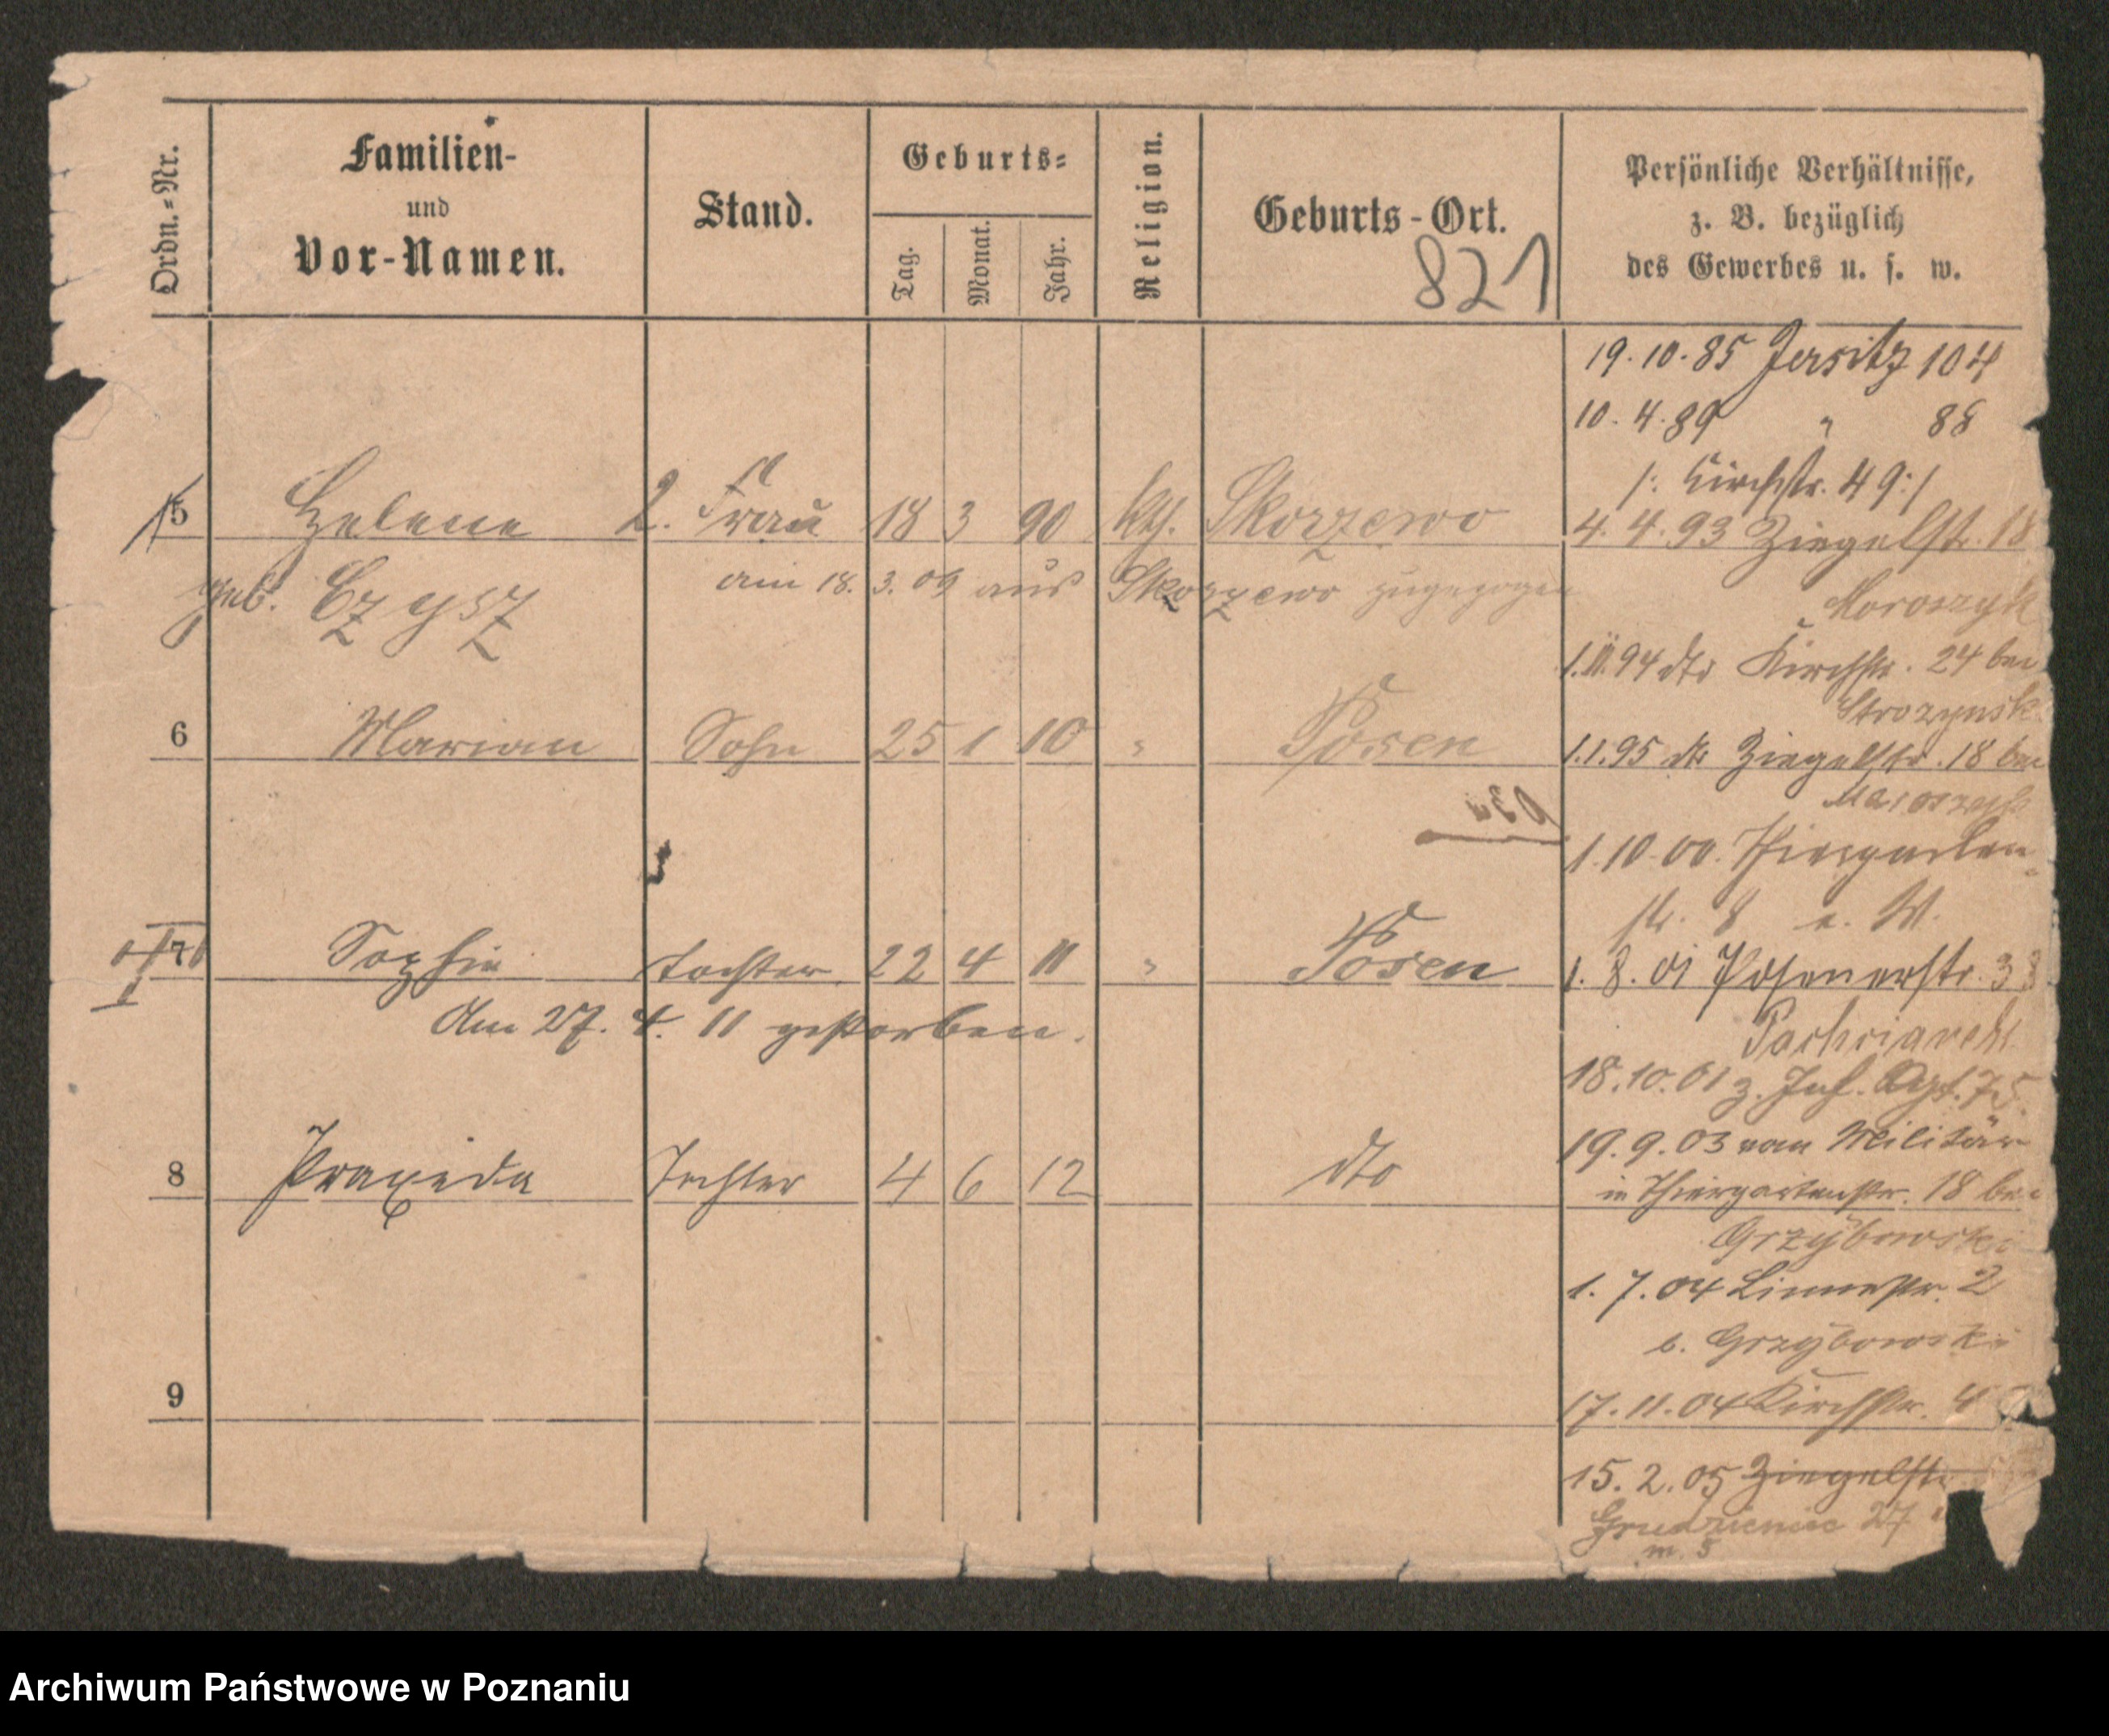 Ordn.-Nr.
Familien-
und
Vor-Namen.
Stand.
Geburts-
Tag.
Monat.
Jahr.
Religion.
Geburts-Ort.
821
Persönliche Verhältnisse,
z. B. bezüglich
des Gewerbes u. s. w.
19.10.85 Jersitz 104
10.4.89 " 88
/: Kirchstr. 49:/
5 Helene 2. Frau 18 3 90 kth. Skorzewo
4.4.93 Ziegelstr. 18
geb. Czysz am 18.3.09 aus Skorzewo zugezogen
1.11.94 dto Kirchstr. 24 bei
Strozynski
6 Marian Sohn 25 1 10 " Posen
1.1.95 dto Ziegelstr. 18 bei
1.10.00. Thiergarten-
str. 8 e. W.
7 Sophie Tochter 22 4 11 " Posen
1.8.01 Posenerstr. 33
am 27. 4. 11 gestorben.
18.10.01 z. Inf. Rgt. 75.
19.9.03 vom Militär
in Thiergartenstr. 18 bei
8 Praxeda Tochter 4 6 12 dto
Grzybowski
1.7.04 Linnestr. 2
b. Grzybowski
9
17.11.04 Kirchstr. 4
15.2.05 Ziegelstr.
Grudzieniec 27
m. 5
Archiwum Państwowe w Poznaniu